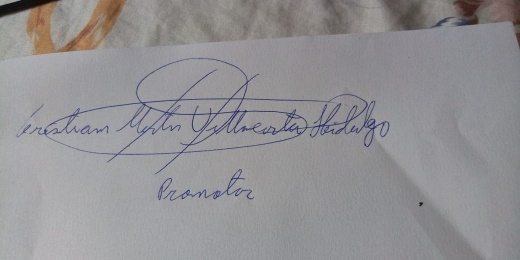 Cristhian Martin Villacorta Hidalgo
Promotor